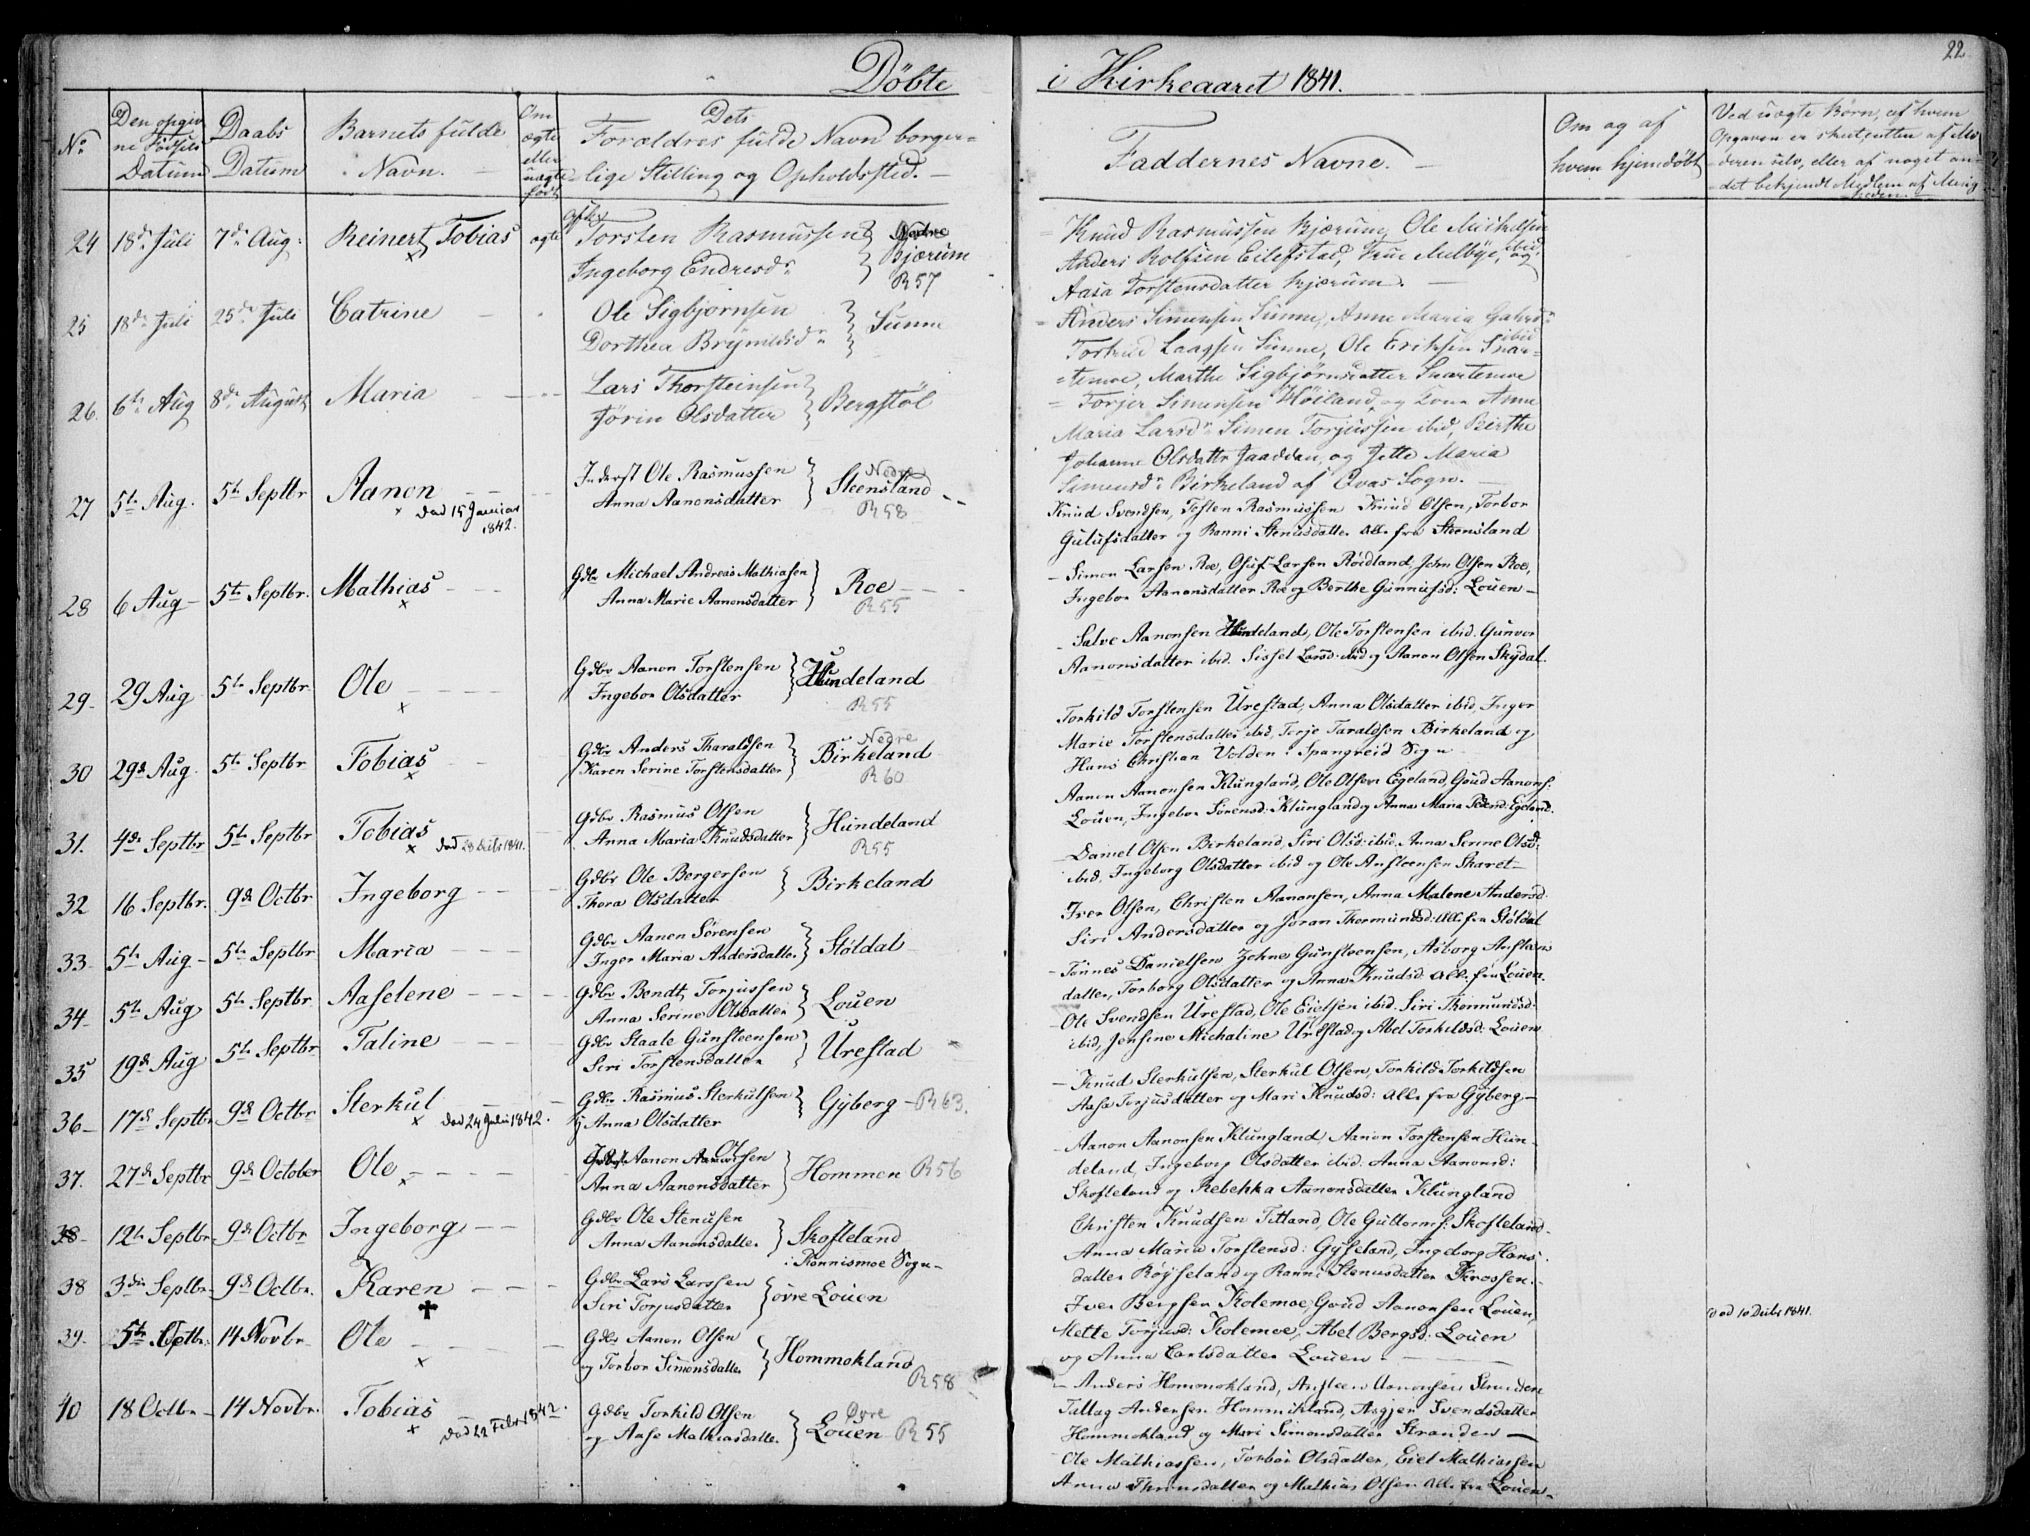 22
Döbte i Kirkeaaret 1841.
No
Den opgiv
ne Födsels
Datum
Daabs
Datum
Barnets fulde
Navn.
Om
ægte
eller
uægte
født
Dets
Forældres fulde Navn borger-
lige Stilling og Opholdssted.
Faddernes Navne.
Om og af
hvem hjemdöbt
Ved uægte Börn, af hvem
Opgaven er skeet, enten af Mo
deren selv, eller af noget an
det bekjendt Medlem af Menig
heden.
24 18de Juli 7de Aug: Reinert Tobias ægte Torsten Rasmussen
Ingeborg Endresdr
Bjærum
R57
Knud Rasmussen Bjærum, Ole Mickelsen
ibid
Anders Rolfsen Eilefstad, Frue Melbye, og
Aasa Torstensdatter Bjærum.
25 18de Juli 25de Juli Catrine Ole Sigbjørnsen
Dorthea
Sunne
Anders Simensen Sunne, Anne Maria
ibid
Sunne, Ole Eriksen Snar=
=temoe, Marthe Sigbjørnsdatter Snartemoe
26. 6te Aug 8de August Maria Lars Thorsteinsen
Jørin Olsdatter
Bergstøl
Torjer Simensen Høiland, og Kone Anne
Maria Larsdr Simen Torjussen ibid, Birthe
Johanne Olsdattr Jaaddan, og Jette Maria
Simensdr Birkeland af Qvas Sogn.
27 5te Aug. 5te Septbr Aanon
Død 15 Januar
1842.
Inderst Ole Rasmussen
Anna Aanonsdatter
Nedre
Steensland
R58
Knud Svendsen, Testen Rasmussen Knud Olsen, Torbor
Gulufsdatter og Ranni Stenusdatter alle fra Steensland
28 6 Aug 5te Septbr. Mathias Gdbr Michael Andreas Mathiasen
Anna Marie Aanonsdatter
Roe
R55
Simon Larsen Roe, Osuf Larsen Röidland, John Olsen Roe,
Ingebor Aanonsdatter Roe og Berthe Gunnufsd: Louen
29 29 Aug 5te Septbr. Ole Gdbr Aanon Torstensen
Ingebor Olsdatter
Hundeland
R55
Salve Aanonsen Hundeland, Ole Torstensen ibid. Gunvor
Aanonsdatter ibid. Sissel Larsd: ibid og Aanon Olsen Skydal
30 29de Aug. 5te Septbr Tobias Gdbr Anders Tharaldsen
Karen Serine Torstensdatter
Nedre
Birkeland
R60
Torkild Torstensen Urestad, Anna Olsdatter ibid, Inger
Marie Torstensdatter ibid, Terje Taraldsen Birkeland og
Hans Christian Volden i Spangreid Sogn
31. 4de Septbr 5te Septbr Tobias
Død 28 Decbr 1841.
Gdbr Rasmus Olsen
Anna Maria Knudsdatter
Hundeland
R55
Aanen Aanonsen Klungland, Ole Olsen Egeland, Goud Aanons:
Louen, Ingebor Sørensd: Klungland og Anna Maria Pedersd: Egeland.
32 16 Septbr. 9de Octbr Ingeborg Gdbr Ole Bergersen
Thora Olsdatter
Birkeland
Daniel Olsen Birkeland, Siri Olsd: ibid. Anna Serine Olsd:
ibid. Ingeborg Olsdatter ibid og Ole Ansteensen Skaret
33 5te Aug 5te Septbr Maria Gdbr Aanen Sørensen
Inger Maria Andersdatter
Stöldal
Iver Olsen, Christen Aanonsen, Anna Malene Andersd
Siri Andersdatter og Joran Thormundsd: alle fra Stöldal
34 5te Aug 5te Septbr Aaselene Gdbr Bendt Torjussen
Anna Serine Olsdatter
Louen
Tönnes Danielsen Zohne Gunsteensen, Asborg Anstens
datter, Torborg Olsdatter og Anna Knudsd: alle fra Louen.
35 19de Aug 5te Septbr Taline Gdbr Staale Gunsteensen
Siri Torstensdatter
Urestad
Ole Svendsen Urestad, Ole Eielsen ibid. Siri Thormundsd:
ibid, Jensine Michaline Urestad og Abel Torkildsd: Louen
36 17de Septbr 9de Octbr Sterkul
Død 24 Julii 1842.
Gdbr Rasmus Sterkulsen
og Anna Olsdatter
Gyberg R63.
Knud Sterkulsen, Sterkul Olsen, Torkild Torkildsen
Aasa Torjusdatter og Mari Knudsd: alle fra Gyberg
37. 27de Septbr 9de October Ole Aanon Olsen
Anna Aanonsdatter
Hommen R56
Aanon Aanonsen Klungland, Aanon Torstensen Hun-
deland, Ingeborg Olsdatter ibid. Anna Aanonsd:
Skofteland og Rebekka Aanonsdatter Klungland
38 12te Septbr 9de Octbr Ingeborg Gdbr Ole Stenusen
Anna Aanonsdatter
Skofteland
i Konnismoe Sogn
Christen Knudsen Titland, Ole Guttorms: Skofteland
Anna Maria Torstensd: Gyseland, Ingeborg Hans
datter Röyseland og Ranni Stenusdatter Krossen.
38 3die Septbr 9de Octbr. Karen Gdbr Lars Larssen
Siri Torjusdatter
övre Louen
Iver Bergsen Kolemoe, Goud Aanonsen Louen,
Mette Torjusd: Kolemoe, Abel Bergsd: Louen
og Anna Carlsdatter Louen
Død 10 Decbr 1841.
39. 5te Octbr: 14 Novbr Ole Gdbr Aanon Olsen
og Torbor Simonsdatter
Hommokland
R58
Anders Homonokland, Ansteen Aanonsen Stranden
Tallag Andersen Hommikland, Asgjer Svendsdatter
Hommokland og Mari Simonsdatter Stranden
40 18 Octbr 14 Novbr. Tobias
Død 22 Febr 1842.
Gdbr Torkild Olsen
og Aase Mathiasdatter
Øvre
Louen R55
Ole Mathiassen, Torbor Olsdatter, Eiel Mathiassen
Anna Thomsdatter og Mathias Olsen alle fra Louen